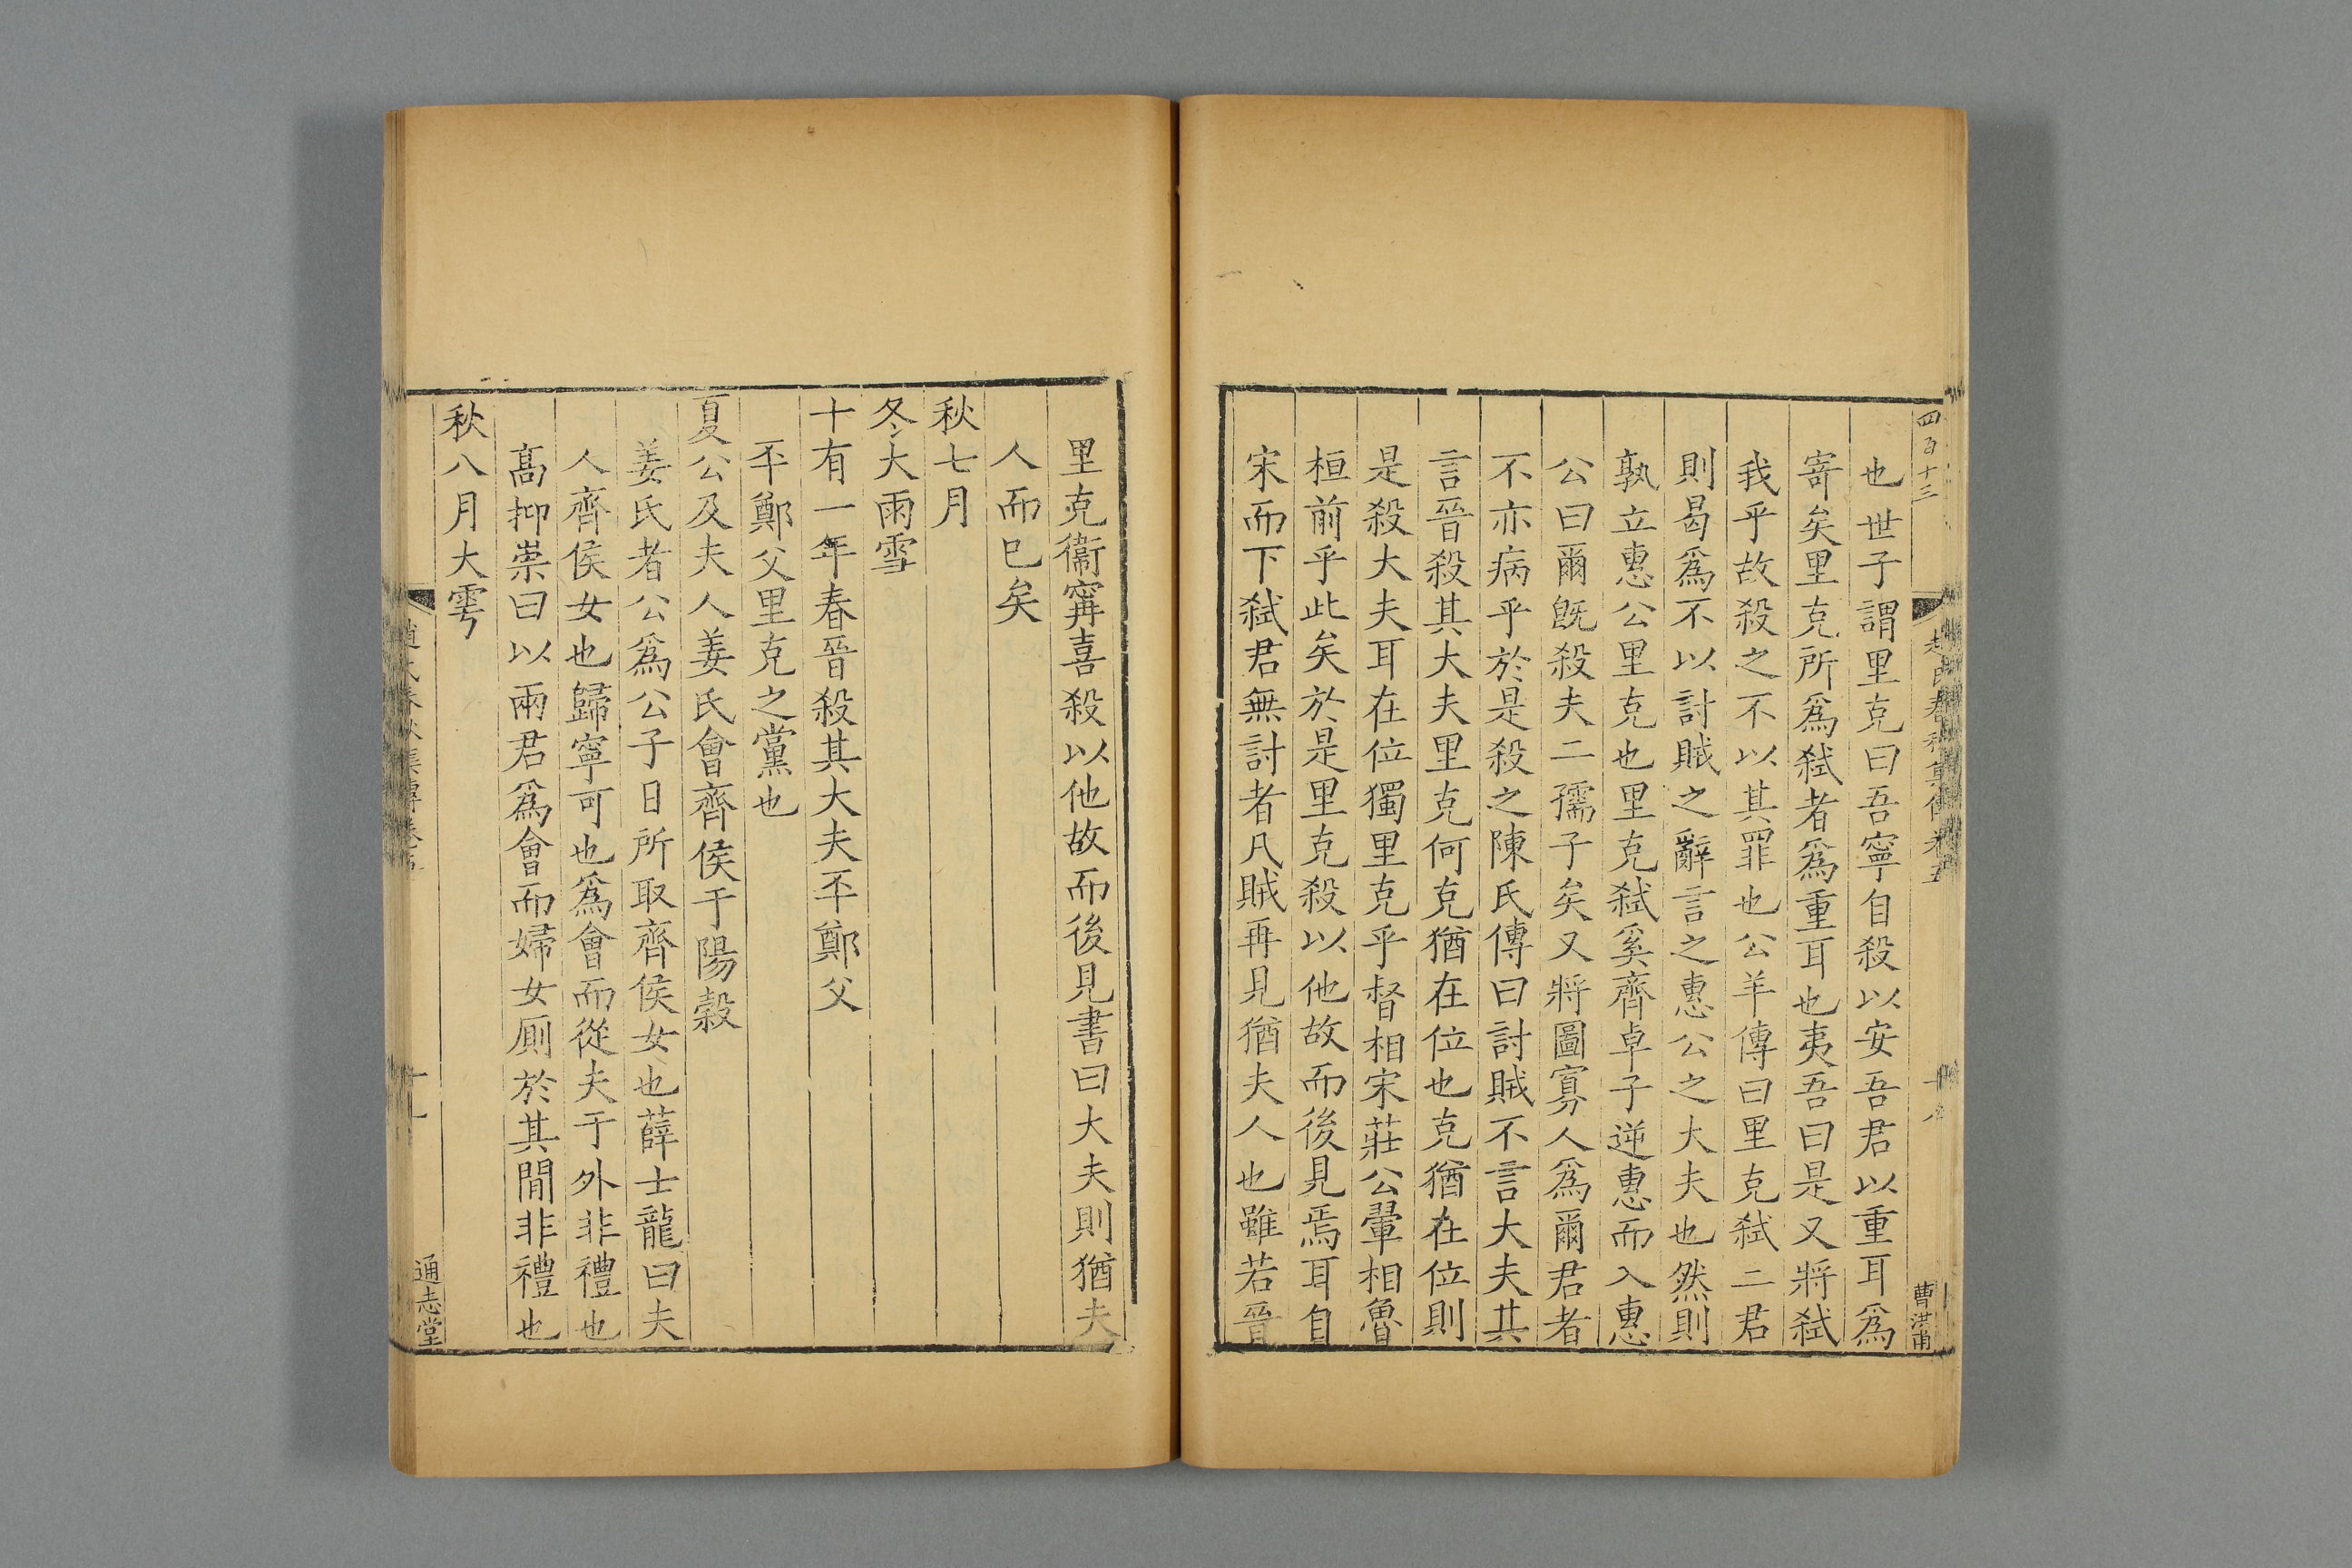 四百十三
曹洪甫
也世子謂里克曰吾寧自殺以安吾君以重耳爲
寄矣里克所爲弒者爲重耳也夷吾曰是又將弒
我乎故殺之不以其罪也公羊傳曰里克弒二君
則曷爲不以討賊之辭言之惠公之大夫也然則
孰立惠公里克也里克弒奚齊卓子逆惠而入惠
公曰爾旣殺夫二孺子矣又將圖寡人爲爾君者
不亦病乎於是殺之陳氏傳曰討賊不言大夫其
言晉殺其大夫里克何克猶在位也克猶在位則
是殺大夫耳在位獨里克乎督相宋莊公翬相魯
桓前乎此矣於是里克殺以他故而後見焉耳自
宋而下弒君無討者凡賊再見猶夫人也雖若晉
里克衞甯喜殺以他故而後見書曰大夫則猶夫
人而巳矣
秋七月
冬大雨雪
十有一年春晉殺其大夫㔻鄭父
㔻鄭父里克之黨也
夏公及夫人姜氏會齊侯于陽穀
姜氏者公爲公子日所取齊侯女也薛士龍曰夫
人齊侯女也歸寧可也爲會而從夫于外非禮也
髙抑崇曰以兩君爲會而婦女厠於其閒非禮也
秋八月大雩
通志堂